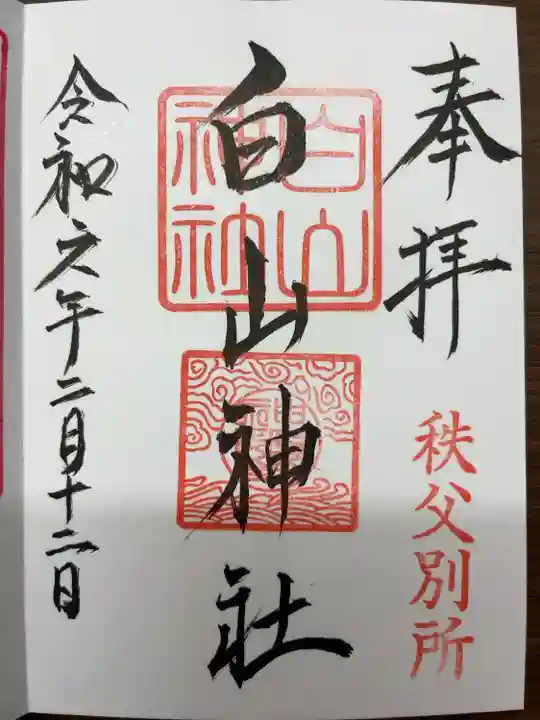 奉拝
秩父別所
白山神社
白山神社
令和六年二月十二日